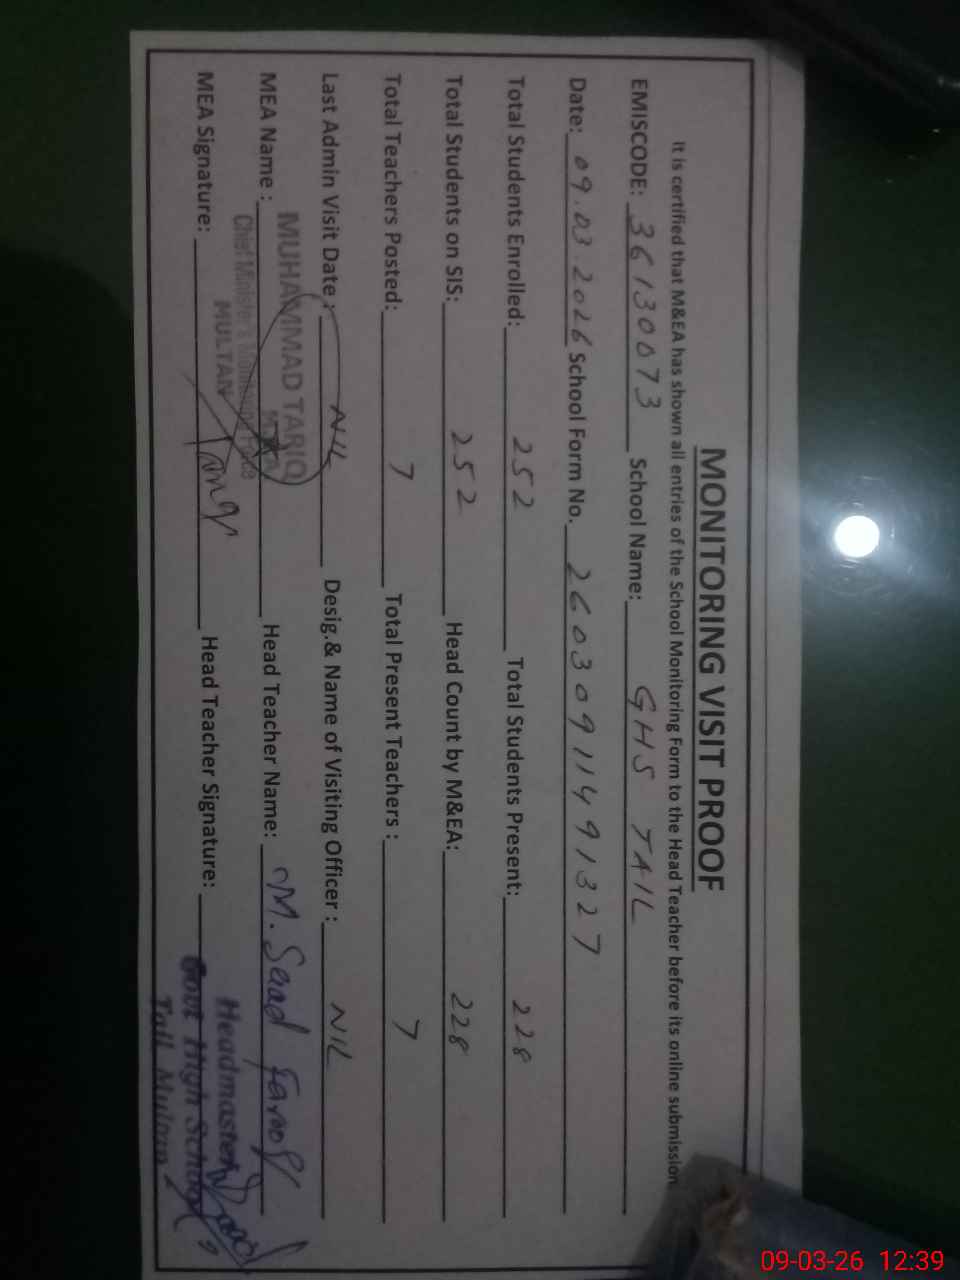 MONITORING VISIT PROOF
It is certified that M&EA has shown all entries of the School Monitoring Form to the Head Teacher before its online submission
EMISCODE: 36130073 School Name: GHS TAIL
Date: 09.03.2026 School Form No. 26030911491327
Total Students Enrolled: 252 Total Students Present: 228
Total Students on SIS: 252 Head Count by M&EA: 228
Total Teachers Posted: 7 Total Present Teachers : 7
Last Admin Visit Date : NIL Desig.& Name of Visiting Officer : NIL
MUHAMMAD TARIQ
MEA Name : Head Teacher Name: M. Saad Farooq
Chief Minister's Monitoring Force
MULTAN
Headmaster
MEA Signature: Head Teacher Signature:
Govt High School
Tail Multan
09-03-26 12:39